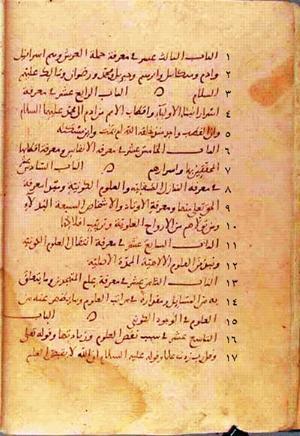 ١ الباب الثالث عشر في معرفة حملة العرش وهم اسرافيل
٢ وادم وميكاييل وابرهيم وجبريل ومحمد ورضوان ومالك عليهم
٣ السلام الباب الرابع عشر في معرفة
٤ اسرار انبيا الاولياء واقطاب الامم من ادم الى محمد عليهما السلام
٥ وان القطب واحد منذ خلقه الله لم يمت واين مسكنه
٦ الباب الخامس عشر في معرفة الانفاس ومعرفة اقطابها
٧ المحققين بها واسرارهم الباب السادس عشر
٨ في معرفة المنازل السفلية والعلوم الكونية ومبدا معرفة
٩ الحق تعلى منها ومعرفة الاوتاد والاشخاص السبعة البدلاء
١٠ ومن تولاهم من الارواح العلوية وترتيب افلاكها
١١ الباب السابع عشر في معرفة انتقال العلوم الكونية
١٢ ونبذ من العلوم الالاهية الممدة الاصلية
١٣ الباب الثامن عشر في معرفة علم المتهجدين وما يتعلق
١٤ به من المسايل ومقداره في مراتب العلوم وما يظهر عنه من
١٥ العلوم في الوجود الكوني الباب
١٦ التاسع عشر في سبب نقص العلوم وزيادتها وقوله تعلى
١٧ وقل رب زدني علما وقوله عليه السلام ان الله لا يقبض العلم